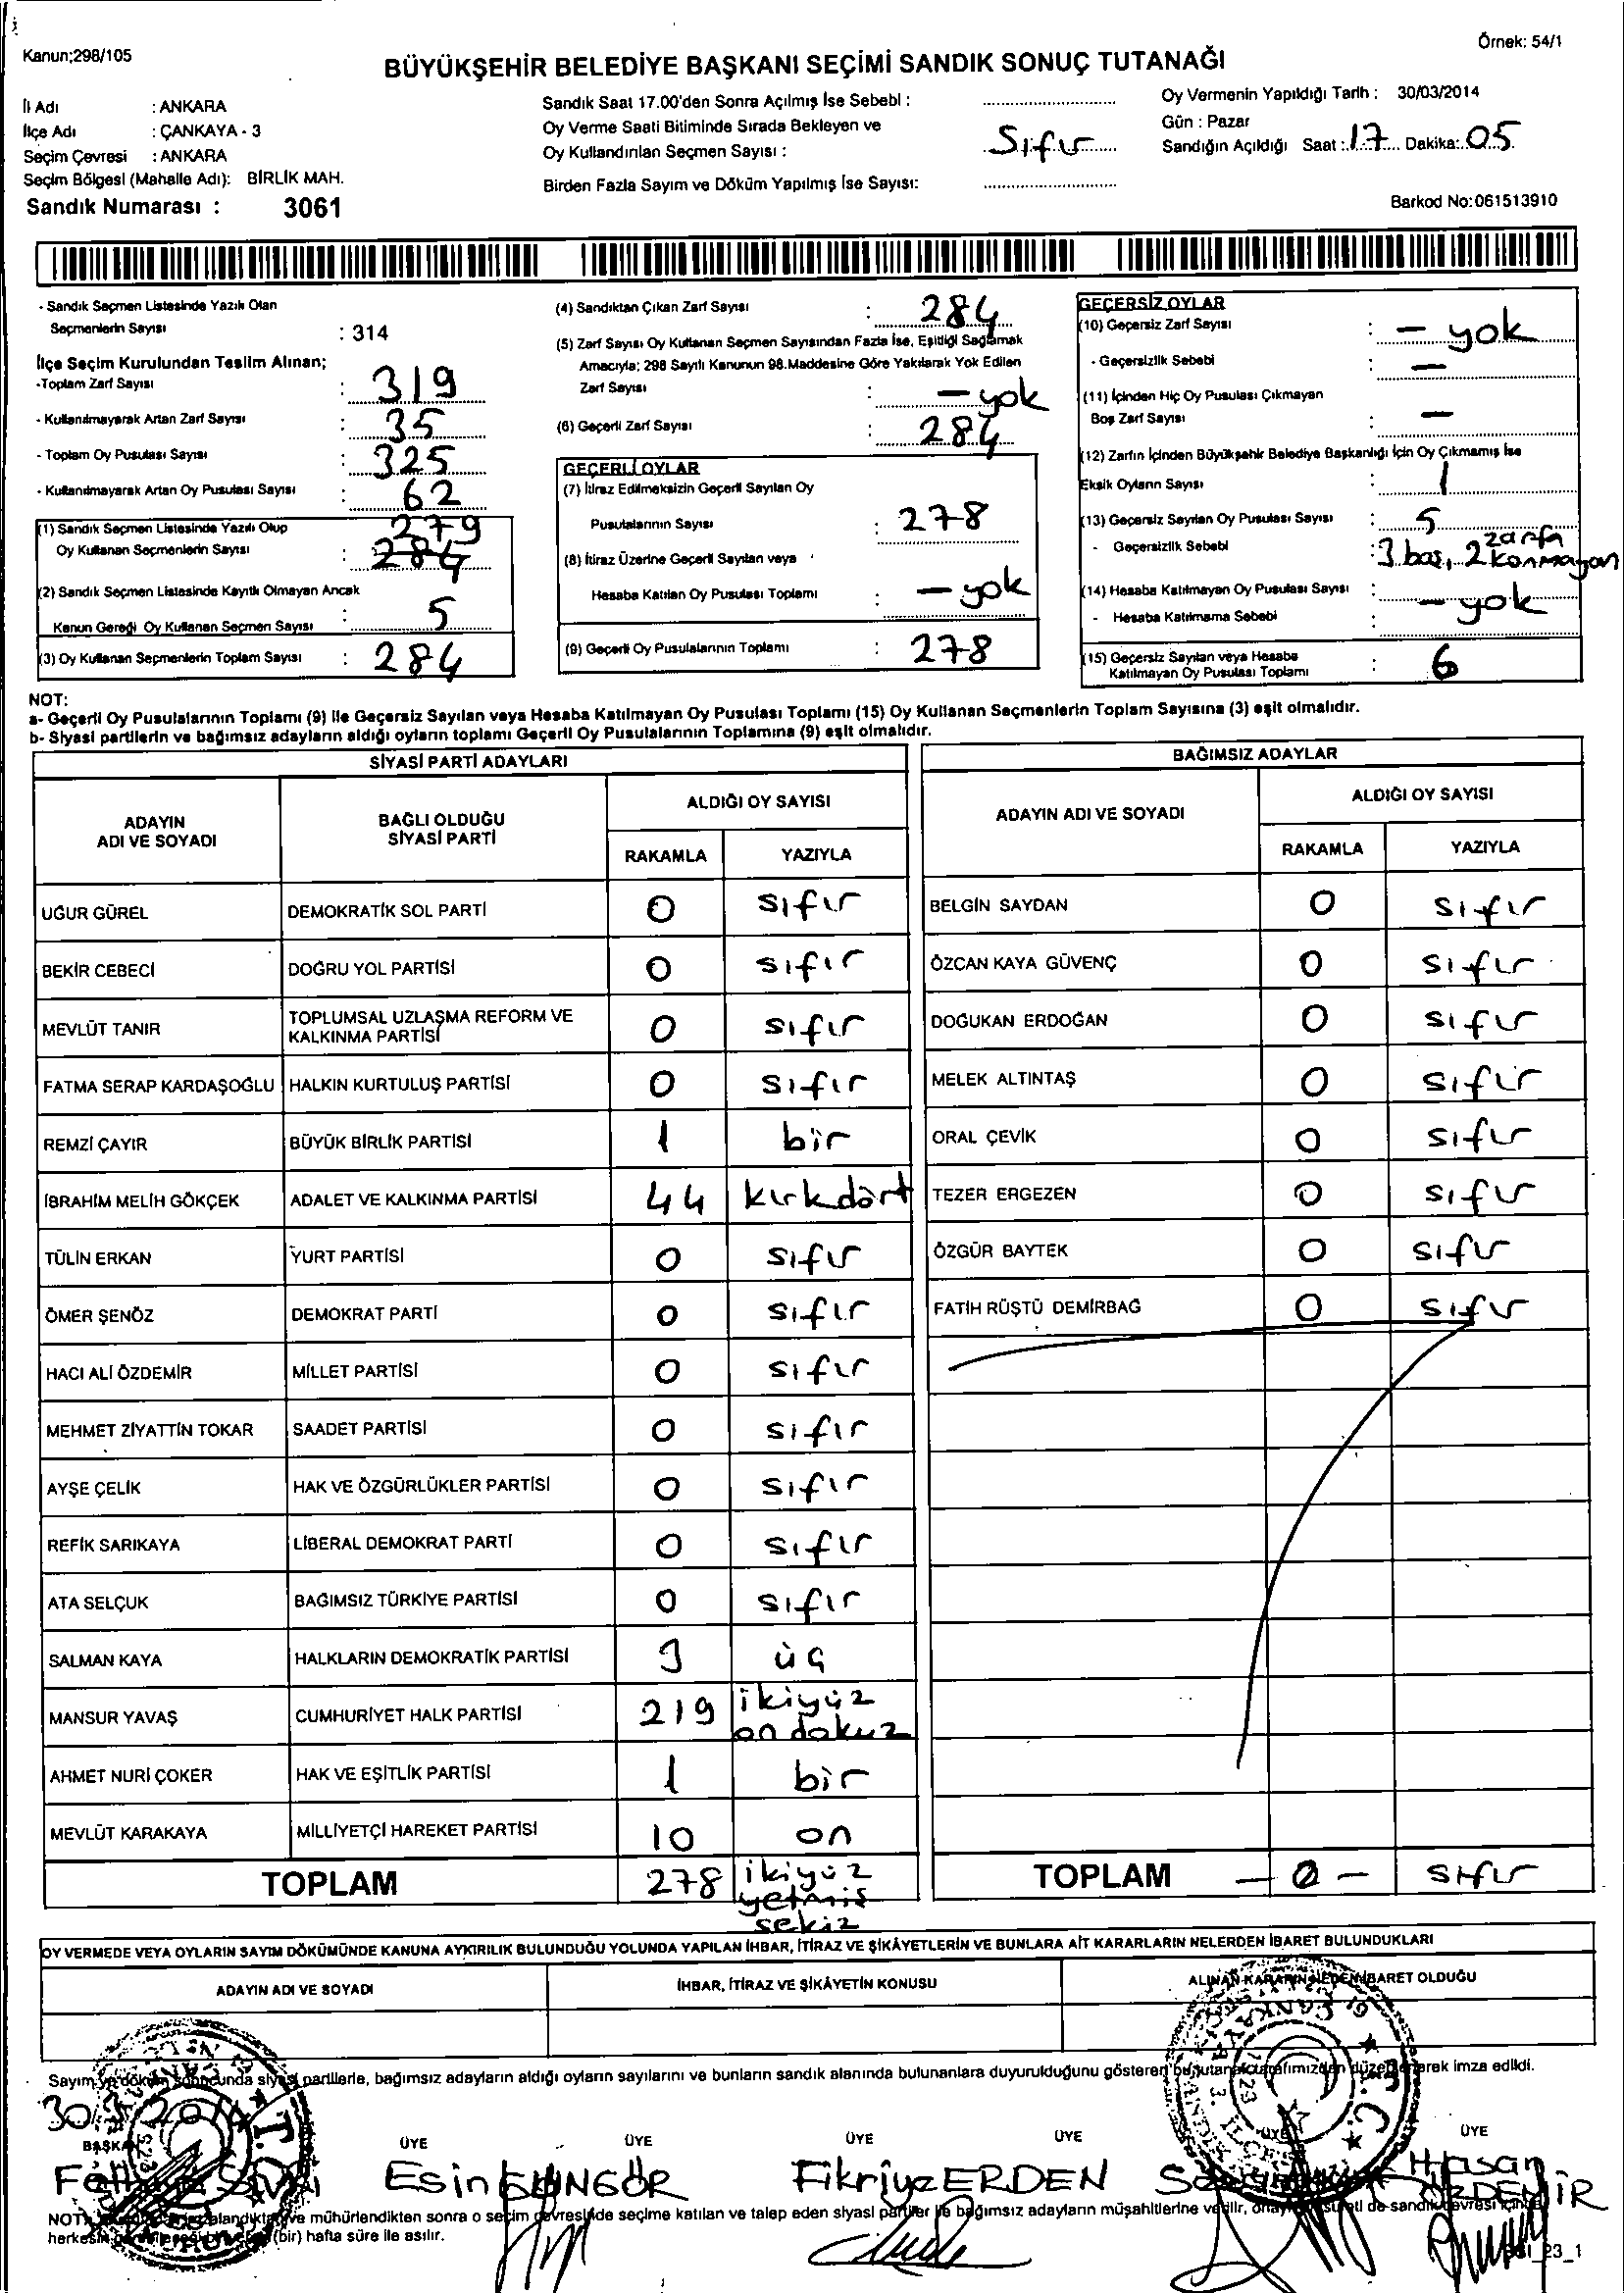 Kanun;298/105
Örnek: 54/1
BÜYÜKŞEHİR BELEDİYE BAŞKANI SEÇİMİ SANDIK SONUÇ TUTANAĞI
İl Adı : ANKARA
İlçe Adı : ÇANKAYA - 3
Seçim Çevresi : ANKARA
Seçim Bölgesi (Mahalle Adı): BİRLİK MAH.
Sandık Numarası : 3061
Sandık Saat 17.00'den Sonra Açılmış İse Sebebi :
Oy Verme Saati Bitiminde Sırada Bekleyen ve
Oy Kullandırılan Seçmen Sayısı : Sıfır
Birden Fazla Sayım ve Döküm Yapılmış İse Sayısı:
Oy Vermenin Yapıldığı Tarih : 30/03/2014
Gün : Pazar
Sandığın Açıldığı Saat : 17 Dakika: 05
Barkod No:061513910
- Sandık Seçmen Listesinde Yazılı Olan
Seçmenlerin Sayısı : 314
İlçe Seçim Kurulundan Teslim Alınan;
-Toplam Zarf Sayısı : 319
- Kullanılmayarak Artan Zarf Sayısı : 35
- Toplam Oy Pusulası Sayısı : 325
- Kullanılmayarak Artan Oy Pusulası Sayısı : 62
(1) Sandık Seçmen Listesinde Yazılı Olup 279
Oy Kullanan Seçmenlerin Sayısı : 284
(2) Sandık Seçmen Listesinde Kayıtlı Olmayan Ancak
Kanun Gereği Oy Kullanan Seçmen Sayısı : 5
(3) Oy Kullanan Seçmenlerin Toplam Sayısı : 284
(4) Sandıktan Çıkan Zarf Sayısı : 284
(5) Zarf Sayısı Oy Kullanan Seçmen Sayısından Fazla İse, Eşitliği Sağlamak
Amacıyla; 298 Sayılı Kanunun 98.Maddesine Göre Yakılarak Yok Edilen
Zarf Sayısı : - yok
(6) Geçerli Zarf Sayısı : 284
GEÇERLİ OYLAR
(7) İtiraz Edilmeksizin Geçerli Sayılan Oy
Pusulalarının Sayısı : 278
(8) İtiraz Üzerine Geçerli Sayılan veya
Hesaba Katılan Oy Pusulası Toplamı : - yok
(9) Geçerli Oy Pusulalarının Toplamı : 278
GEÇERSİZ OYLAR
(10) Geçersiz Zarf Sayısı : - yok
- Geçersizlik Sebebi : -
(11) İçinden Hiç Oy Pusulası Çıkmayan
Boş Zarf Sayısı : -
(12) Zarfın İçinden Büyükşehir Belediye Başkanlığı İçin Oy Çıkmamış İse
Eksik Oyların Sayısı : 1
(13) Geçersiz Sayılan Oy Pusulası Sayısı : 5
- Geçersizlik Sebebi : 3 boş, 2 zarfa konmayan
(14) Hesaba Katılmayan Oy Pusulası Sayısı : - yok
- Hesaba Katılmama Sebebi :
(15) Geçersiz Sayılan veya Hesaba
Katılmayan Oy Pusulası Toplamı : 6
NOT:
a- Geçerli Oy Pusulalarının Toplamı (9) ile Geçersiz Sayılan veya Hesaba Katılmayan Oy Pusulası Toplamı (15) Oy Kullanan Seçmenlerin Toplam Sayısına (3) eşit olmalıdır.
b- Siyasi partilerin ve bağımsız adayların aldığı oyların toplamı Geçerli Oy Pusulalarının Toplamına (9) eşit olmalıdır.
SİYASİ PARTİ ADAYLARI
ADAYIN ADI VE SOYADI
BAĞLI OLDUĞU SİYASİ PARTİ
ALDIĞI OY SAYISI
RAKAMLA YAZIYLA
UĞUR GÜREL DEMOKRATİK SOL PARTİ 0 sıfır
BEKİR CEBECİ DOĞRU YOL PARTİSİ 0 sıfır
MEVLÜT TANIR TOPLUMSAL UZLAŞMA REFORM VE KALKINMA PARTİSİ 0 sıfır
FATMA SERAP KARDAŞOĞLU HALKIN KURTULUŞ PARTİSİ 0 sıfır
REMZİ ÇAYIR BÜYÜK BİRLİK PARTİSİ 1 bir
İBRAHİM MELİH GÖKÇEK ADALET VE KALKINMA PARTİSİ 44 kırkdört
TÜLİN ERKAN YURT PARTİSİ 0 sıfır
ÖMER ŞENÖZ DEMOKRAT PARTİ 0 sıfır
HACI ALİ ÖZDEMİR MİLLET PARTİSİ 0 sıfır
MEHMET ZİYATTİN TOKAR SAADET PARTİSİ 0 sıfır
AYŞE ÇELİK HAK VE ÖZGÜRLÜKLER PARTİSİ 0 sıfır
REFİK SARIKAYA LİBERAL DEMOKRAT PARTİ 0 sıfır
ATA SELÇUK BAĞIMSIZ TÜRKİYE PARTİSİ 0 sıfır
SALMAN KAYA HALKLARIN DEMOKRATİK PARTİSİ 3 üç
MANSUR YAVAŞ CUMHURİYET HALK PARTİSİ 219 ikiyüz on dokuz
AHMET NURİ ÇOKER HAK VE EŞİTLİK PARTİSİ 1 bir
MEVLÜT KARAKAYA MİLLİYETÇİ HAREKET PARTİSİ 10 on
TOPLAM 278 ikiyüz yetmiş sekiz
BAĞIMSIZ ADAYLAR
ADAYIN ADI VE SOYADI
ALDIĞI OY SAYISI
RAKAMLA YAZIYLA
BELGİN SAYDAN 0 sıfır
ÖZCAN KAYA GÜVENÇ 0 sıfır
DOĞUKAN ERDOĞAN 0 sıfır
MELEK ALTINTAŞ 0 sıfır
ORAL ÇEVİK 0 sıfır
TEZER ERGEZEN 0 sıfır
ÖZGÜR BAYTEK 0 sıfır
FATİH RÜŞTÜ DEMİRBAĞ 0 sıfır
TOPLAM - 0 - sıfır
OY VERMEDE VEYA OYLARIN SAYIM DÖKÜMÜNDE KANUNA AYKIRILIK BULUNDUĞU YOLUNDA YAPILAN İHBAR, İTİRAZ VE ŞİKÂYETLERİN VE BUNLARA AİT KARARLARIN NELERDEN İBARET BULUNDUKLARI
ADAYIN ADI VE SOYADI
İHBAR, İTİRAZ VE ŞİKÂYETİN KONUSU
ALINAN KARARIN NEDEN İBARET OLDUĞU
Sayım ve döküm sonucunda siyasi partilerle, bağımsız adayların aldığı oyların sayılarını ve bunların sandık alanında bulunanlara duyurulduğunu gösteren bu tutanak tarafımızdan düzenlenerek imza edildi.
30/3/2014
BAŞKAN ÜYE ÜYE ÜYE ÜYE ÜYE ÜYE
Esin GÜNGÖR Fikriye ERDEN Hasan ÖZDEMİR
ve mühürlendikten sonra o seçim çevresinde seçime katılan ve talep eden siyasi partiler ile bağımsız adayların müşahitlerine verilir,
(bir) hafta süre ile asılır.
23_1